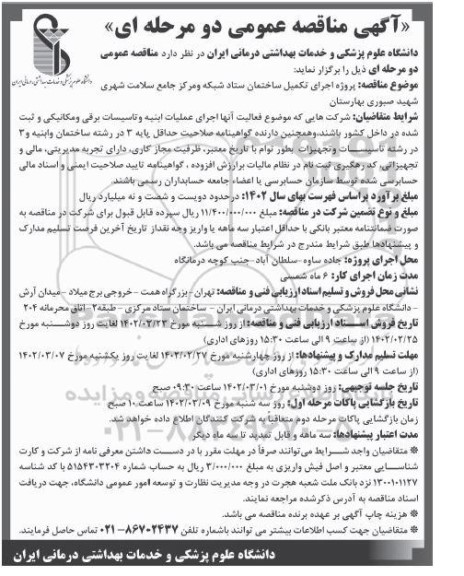 «آگهی مناقصه عمومی دو مرحله ای»
دانشگاه علوم پزشکی و خدمات بهداشتی درمانی ایران در نظر دارد مناقصه عمومی
دو مرحله ای ذیل را برگزار نماید:
موضوع مناقصه: پروژه اجرای تکمیل ساختمان ستاد شبکه ومرکز جامع سلامت شهری
شهید صبوری بهارستان
شرایط متقاضیان: شرکت هایی که موضوع فعالیت آنها اجرای عملیات ابنیه وتاسیسات برقی ومکانیکی و ثبت
شده در داخل کشور باشند.وهمچنین دارنده گواهینامه صلاحیت حداقل پایه ۳ در رشته ساختمان وابنیه و۳
در رشته تاسیسات وتجهیزات بطور توام با تاریخ معتبر، ظرفیت مجاز کاری، دارای تجربه مدیریتی، مالی و
تجهیزاتی، کد رهگیری ثبت نام در نظام مالیات برارزش افزوده ، گواهینامه تایید صلاحیت ایمنی و اسناد مالی
حسابرسی شده توسط سازمان حسابرسی یا اعضاء جامعه حسابداران رسمی باشند.
مبلغ برآورد براساس فهرست بهای سال ۱۴۰۲: در حدود دویست و شصت و نه میلیارد ریال
مبلغ و نوع تضمین شرکت در مناقصه: مبلغ ۱۱/۴۰۰/۰۰۰/۰۰۰ ریال سپرده قابل قبول برای شرکت در مناقصه به
صورت ضمانتنامه معتبر بانکی با حداقل اعتبار سه ماهه یا واریز وجه نقداز تاریخ آخرین فرصت تسلیم مدارک
و پیشنهادها طبق شرایط مندرج در شرایط مناقصه می باشد.
محل اجرای پروژه: جاده ساوه -سلطان آباد-جنب کوچه درمانگاه
مدت زمان اجرای کار: ۶ ماه شمسی
نشانی محل فروش و تسلیم اسناد ارزیابی فنی و مناقصه: تهران-بزرگراه همت - خروجی برج میلاد -میدان آرش
- دانشگاه علوم پزشکی و خدمات بهداشتی درمانی ایران - ساختمان ستاد مرکزی - طبقه۲ - اتاق محرمانه ۲۰۴
تاریخ فروش اسناد ارزیابی فنی و مناقصه: از روز شنبه مورخ ۱۴۰۲/۰۲/۲۳ لغایت روز دوشنبه مورخ
۱۴۰۲/۰۲/۲۵ (از ساعت ۹ الی ساعت ۱۵:۳۰ روزهای اداری)
مهلت تسلیم مدارک و پیشنهادها: از روز چهارشنبه مورخ ۱۴۰۲/۰۲/۲۷ لغایت روز یکشنبه مورخ ۱۴۰۲/۰۳/۰۷
(از ساعت ۹ الی ساعت ۱۵:۳۰ روزهای اداری)
تاریخ جلسه توجیهی: روز دوشنبه مورخ ۱۴۰۲/۰۳/۰۱ ساعت ۰۹:۳۰ صبح
تاریخ بازگشایی پاکات مرحله اول: روز سه شنبه مورخ ۱۴۰۲/۰۳/۰۹ ساعت ۱۰ صبح
زمان بازگشایی پاکات مرحله دوم متعاقباً به شرکت کنندگان اطلاع داده خواهد شد.
مدت اعتبار پیشنهادها: سه ماهه و قابل تمدید تا سه ماه دیگر
※ متقاضیان واجد شرایط می توانند صرفاً در مهلت مقرر با در دست داشتن معرفی نامه از شرکت و کارت
شناسایی معتبر و اصل فیش واریزی به مبلغ ۳/۰۰۰/۰۰۰ ریال به حساب شماره ۵۱۵۴۳۰۳۲۰۴ با کد شناسه
۱۳۰۰۱۰۱۱۲۷ نزد بانک ملت شعبه هجرت در وجه مدیریت نظارت و توسعه امور عمومی دانشگاه، جهت دریافت
اسناد مناقصه به آدرس ذکرشده مراجعه نمایند.
※ هزینه چاپ آگهی بر عهده برنده مناقصه می باشد.
※ متقاضیان جهت کسب اطلاعات بیشتر می توانند باشماره تلفن ۸۶۷۰۲۴۳۷-۰۲۱ تماس حاصل فرمایند.
دانشگاه علوم پزشکی و خدمات بهداشتی درمانی ایران